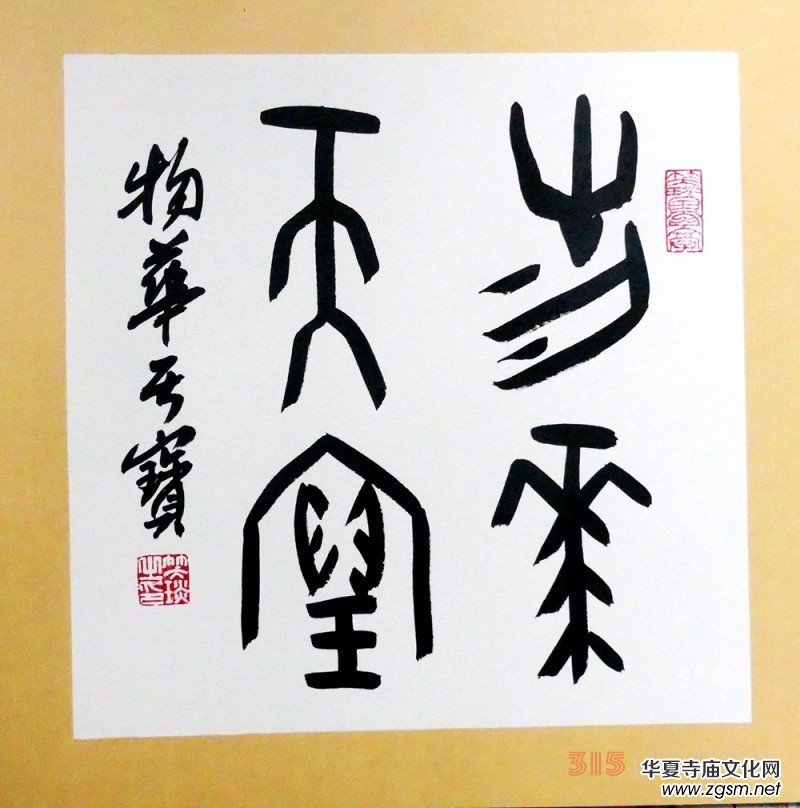 物華
天寶
物華天寶
315
华夏寺庙文化网
www.zgsm.net